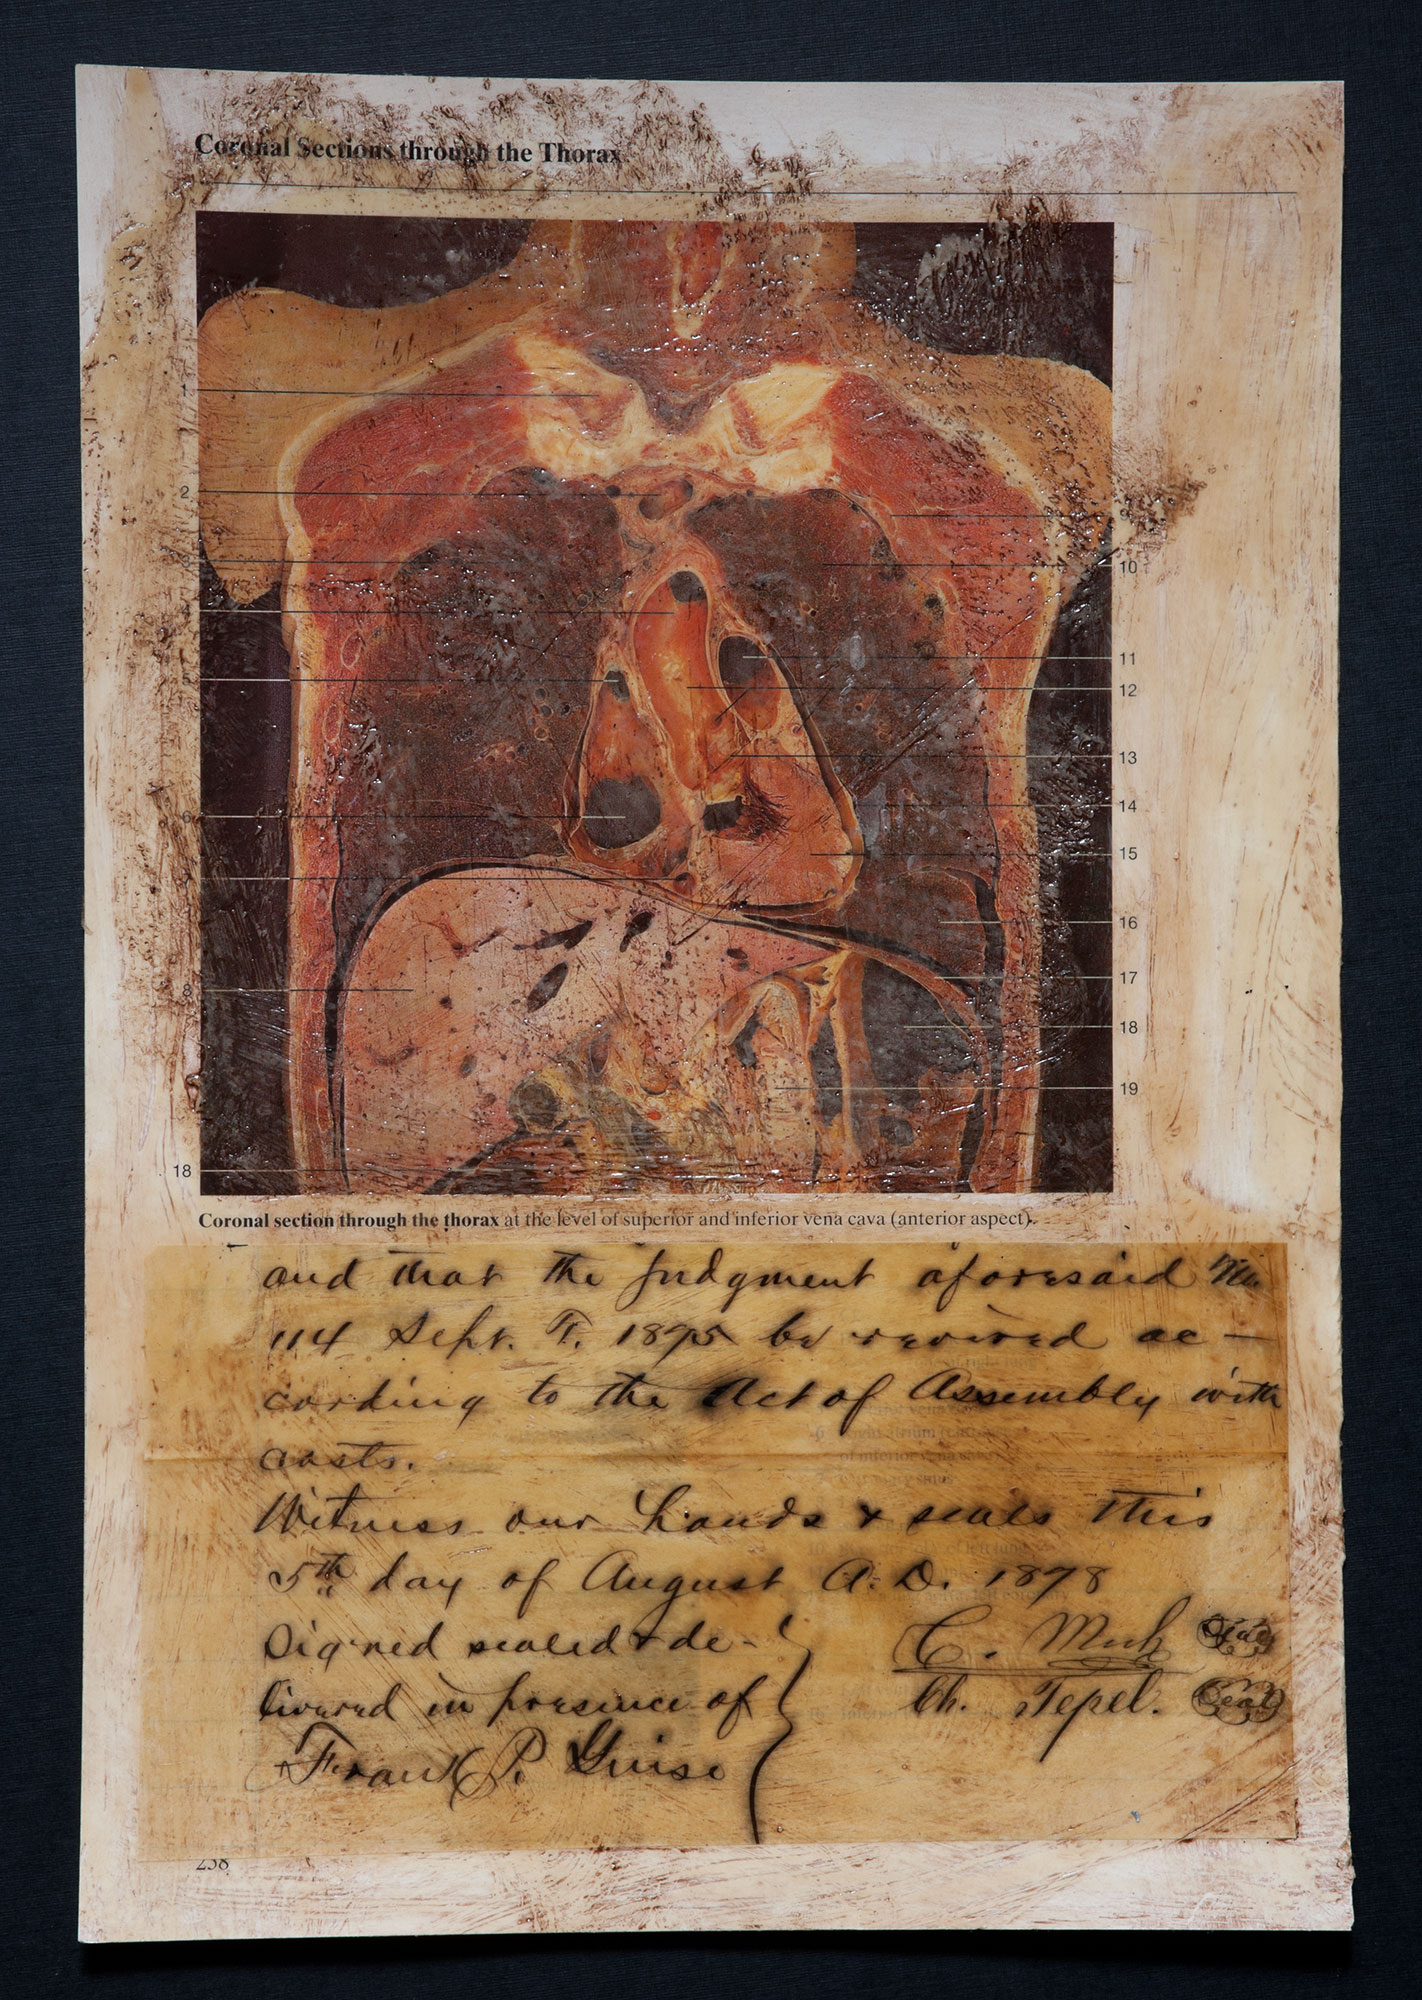 Coronal Sections through the Thorax
1
2
3
4
5
6
8
18
9
10
11
12
13
14
15
16
17
18
19
Coronal section through the thorax at the level of superior and inferior vena cava (anterior aspect).
and that the judgment aforesaid No
114 Sept. T. 1875 be revived ac-
cording to the Act of Assembly with
costs.
Witness our hands & seals this
5th day of August A.D. 1878
Signed sealed & de-
livered in presence of
Frank P. Guise
C. Seal
Ch. Tepel. Seal
238